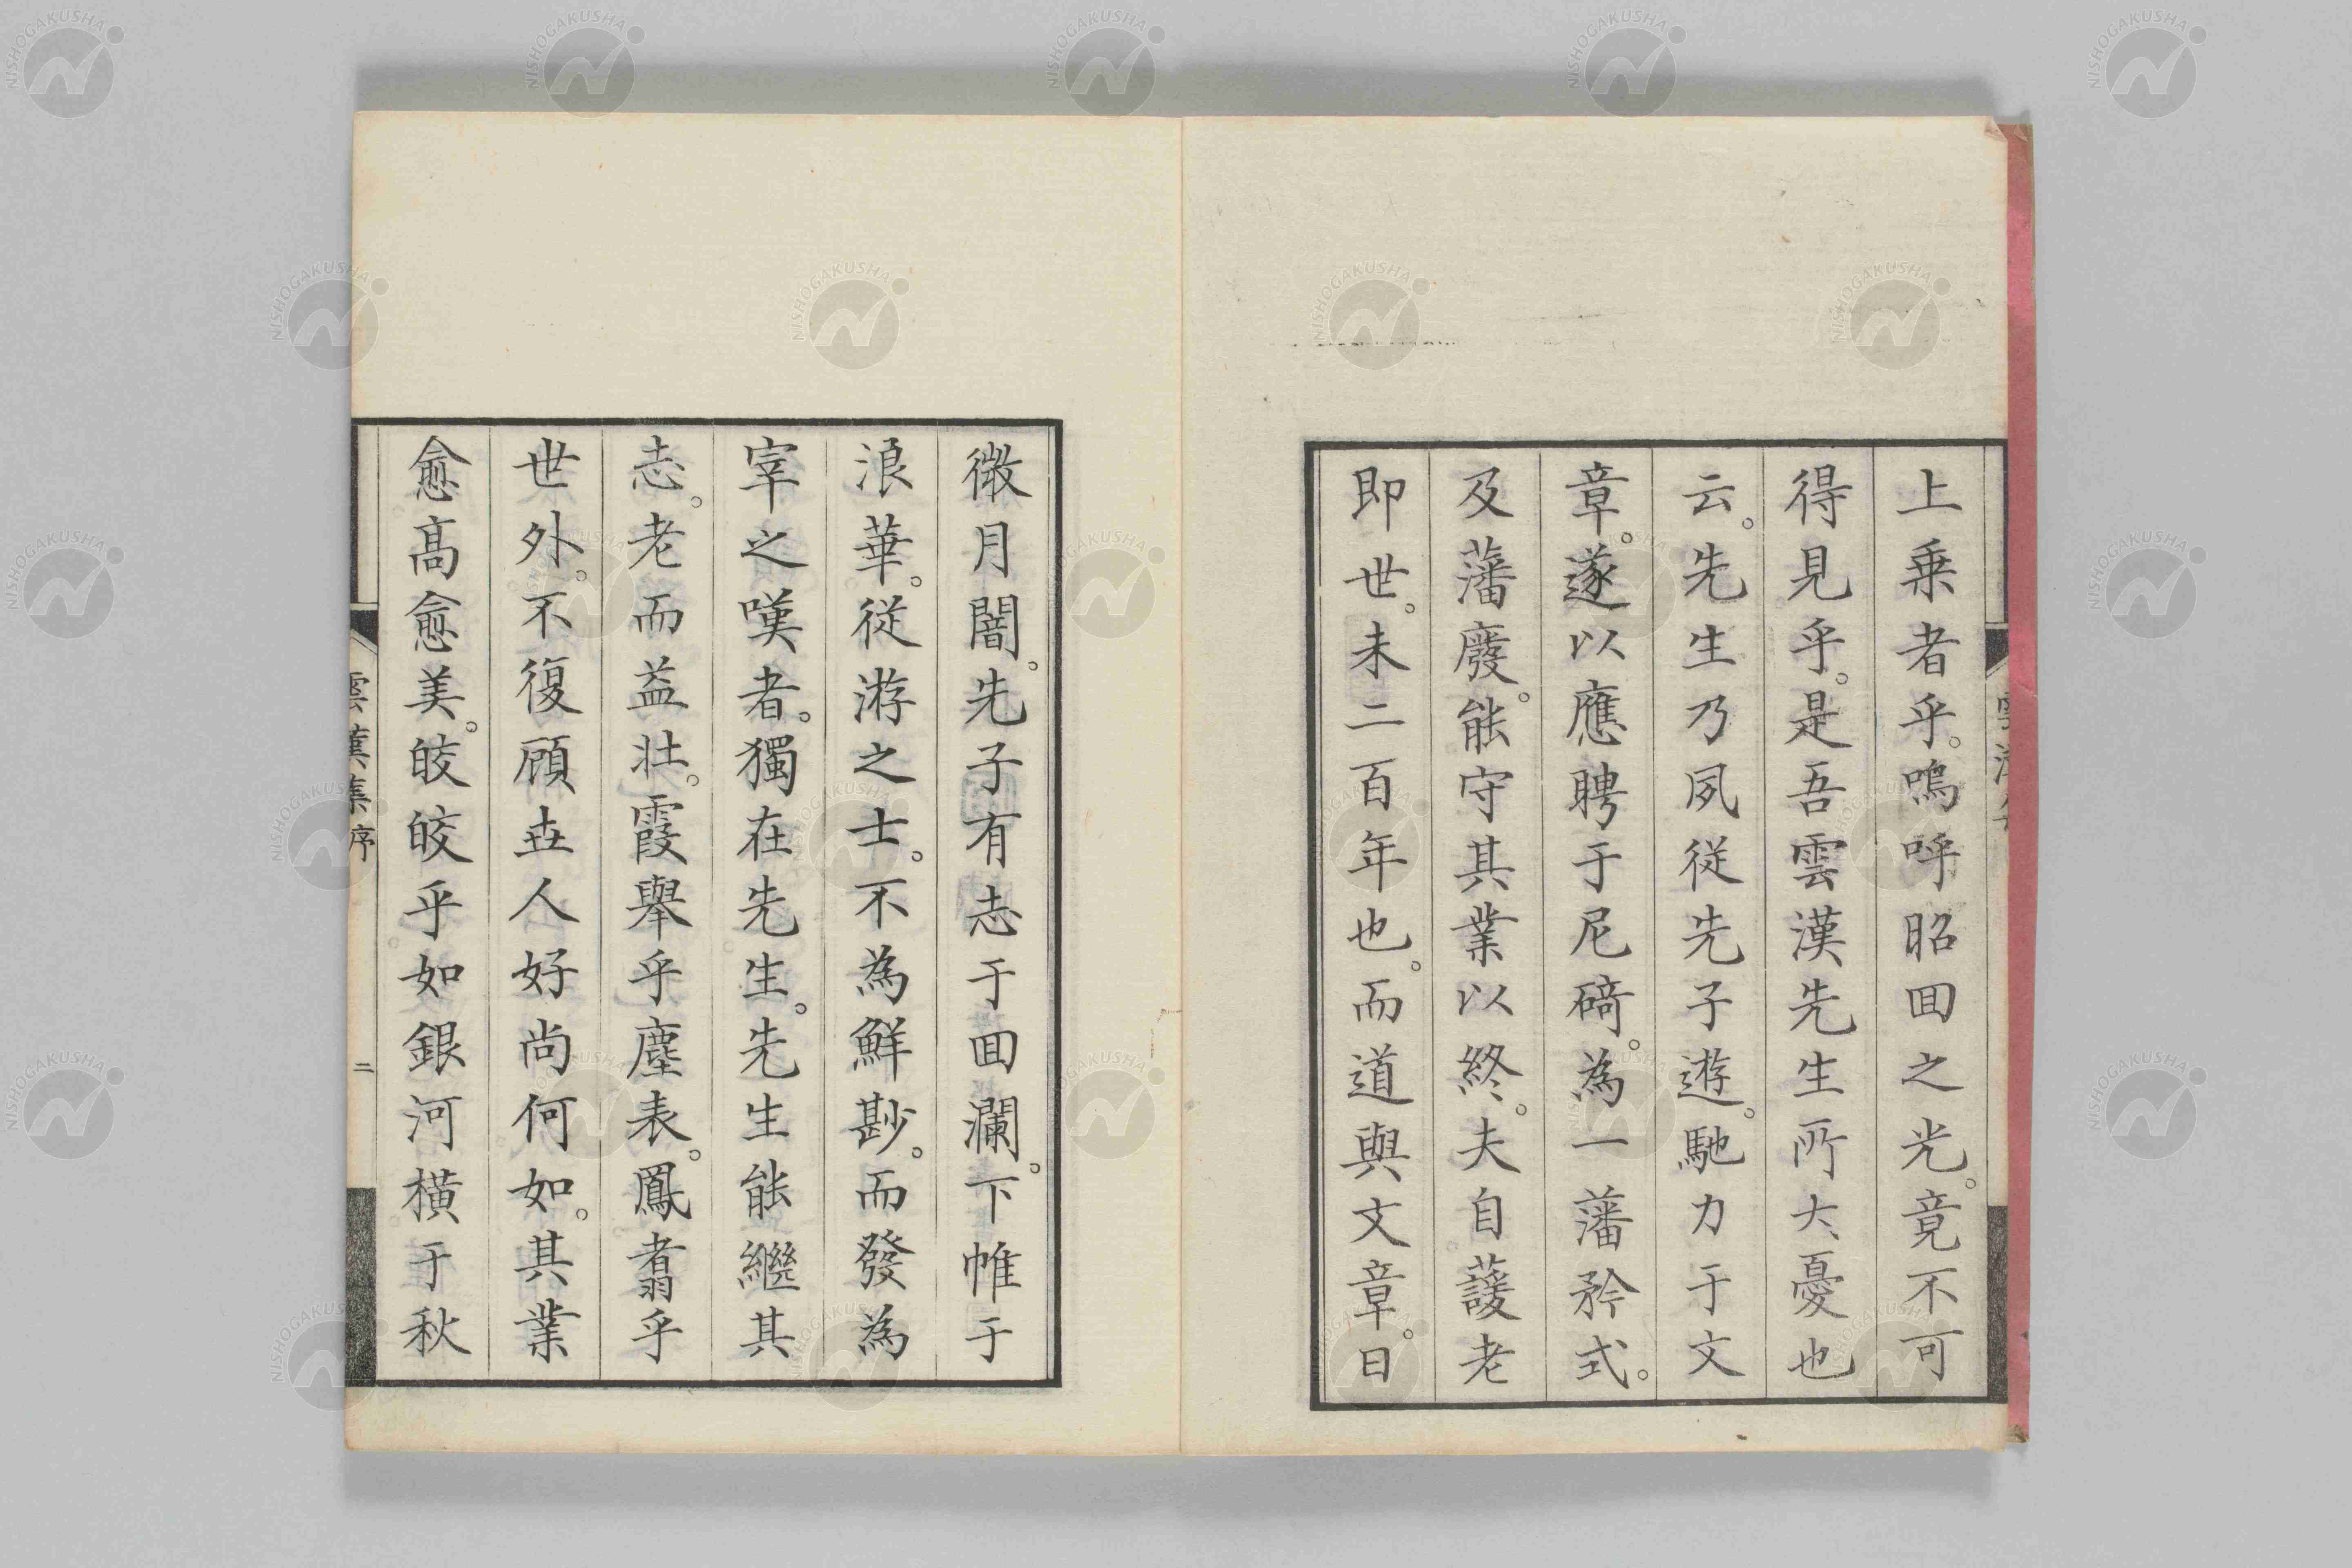 上乗者乎。嗚呼昭囬之光。竟不可
得見乎。是吾雲漢先生所大憂也
云。先生乃夙従先子遊。馳力于文
章。遂以應聘于尼碕。為一藩矜式。
及藩廢。能守其業以終。夫自蘐老
即世。未二百年也。而道與文章。日
微月闇。先子有志于囬瀾。下帷于
浪華。従游之士。不為鮮尠。而發為
宰之嘆者。獨在先生。先生能繼其
志。老而益壮。霞舉乎塵表。鳳翥乎
世外。不復顧卋人好尚何如。其業
愈高愈美。皎皎乎如銀河横于秋
雲漢集序
二
NISHOGAKUSHA